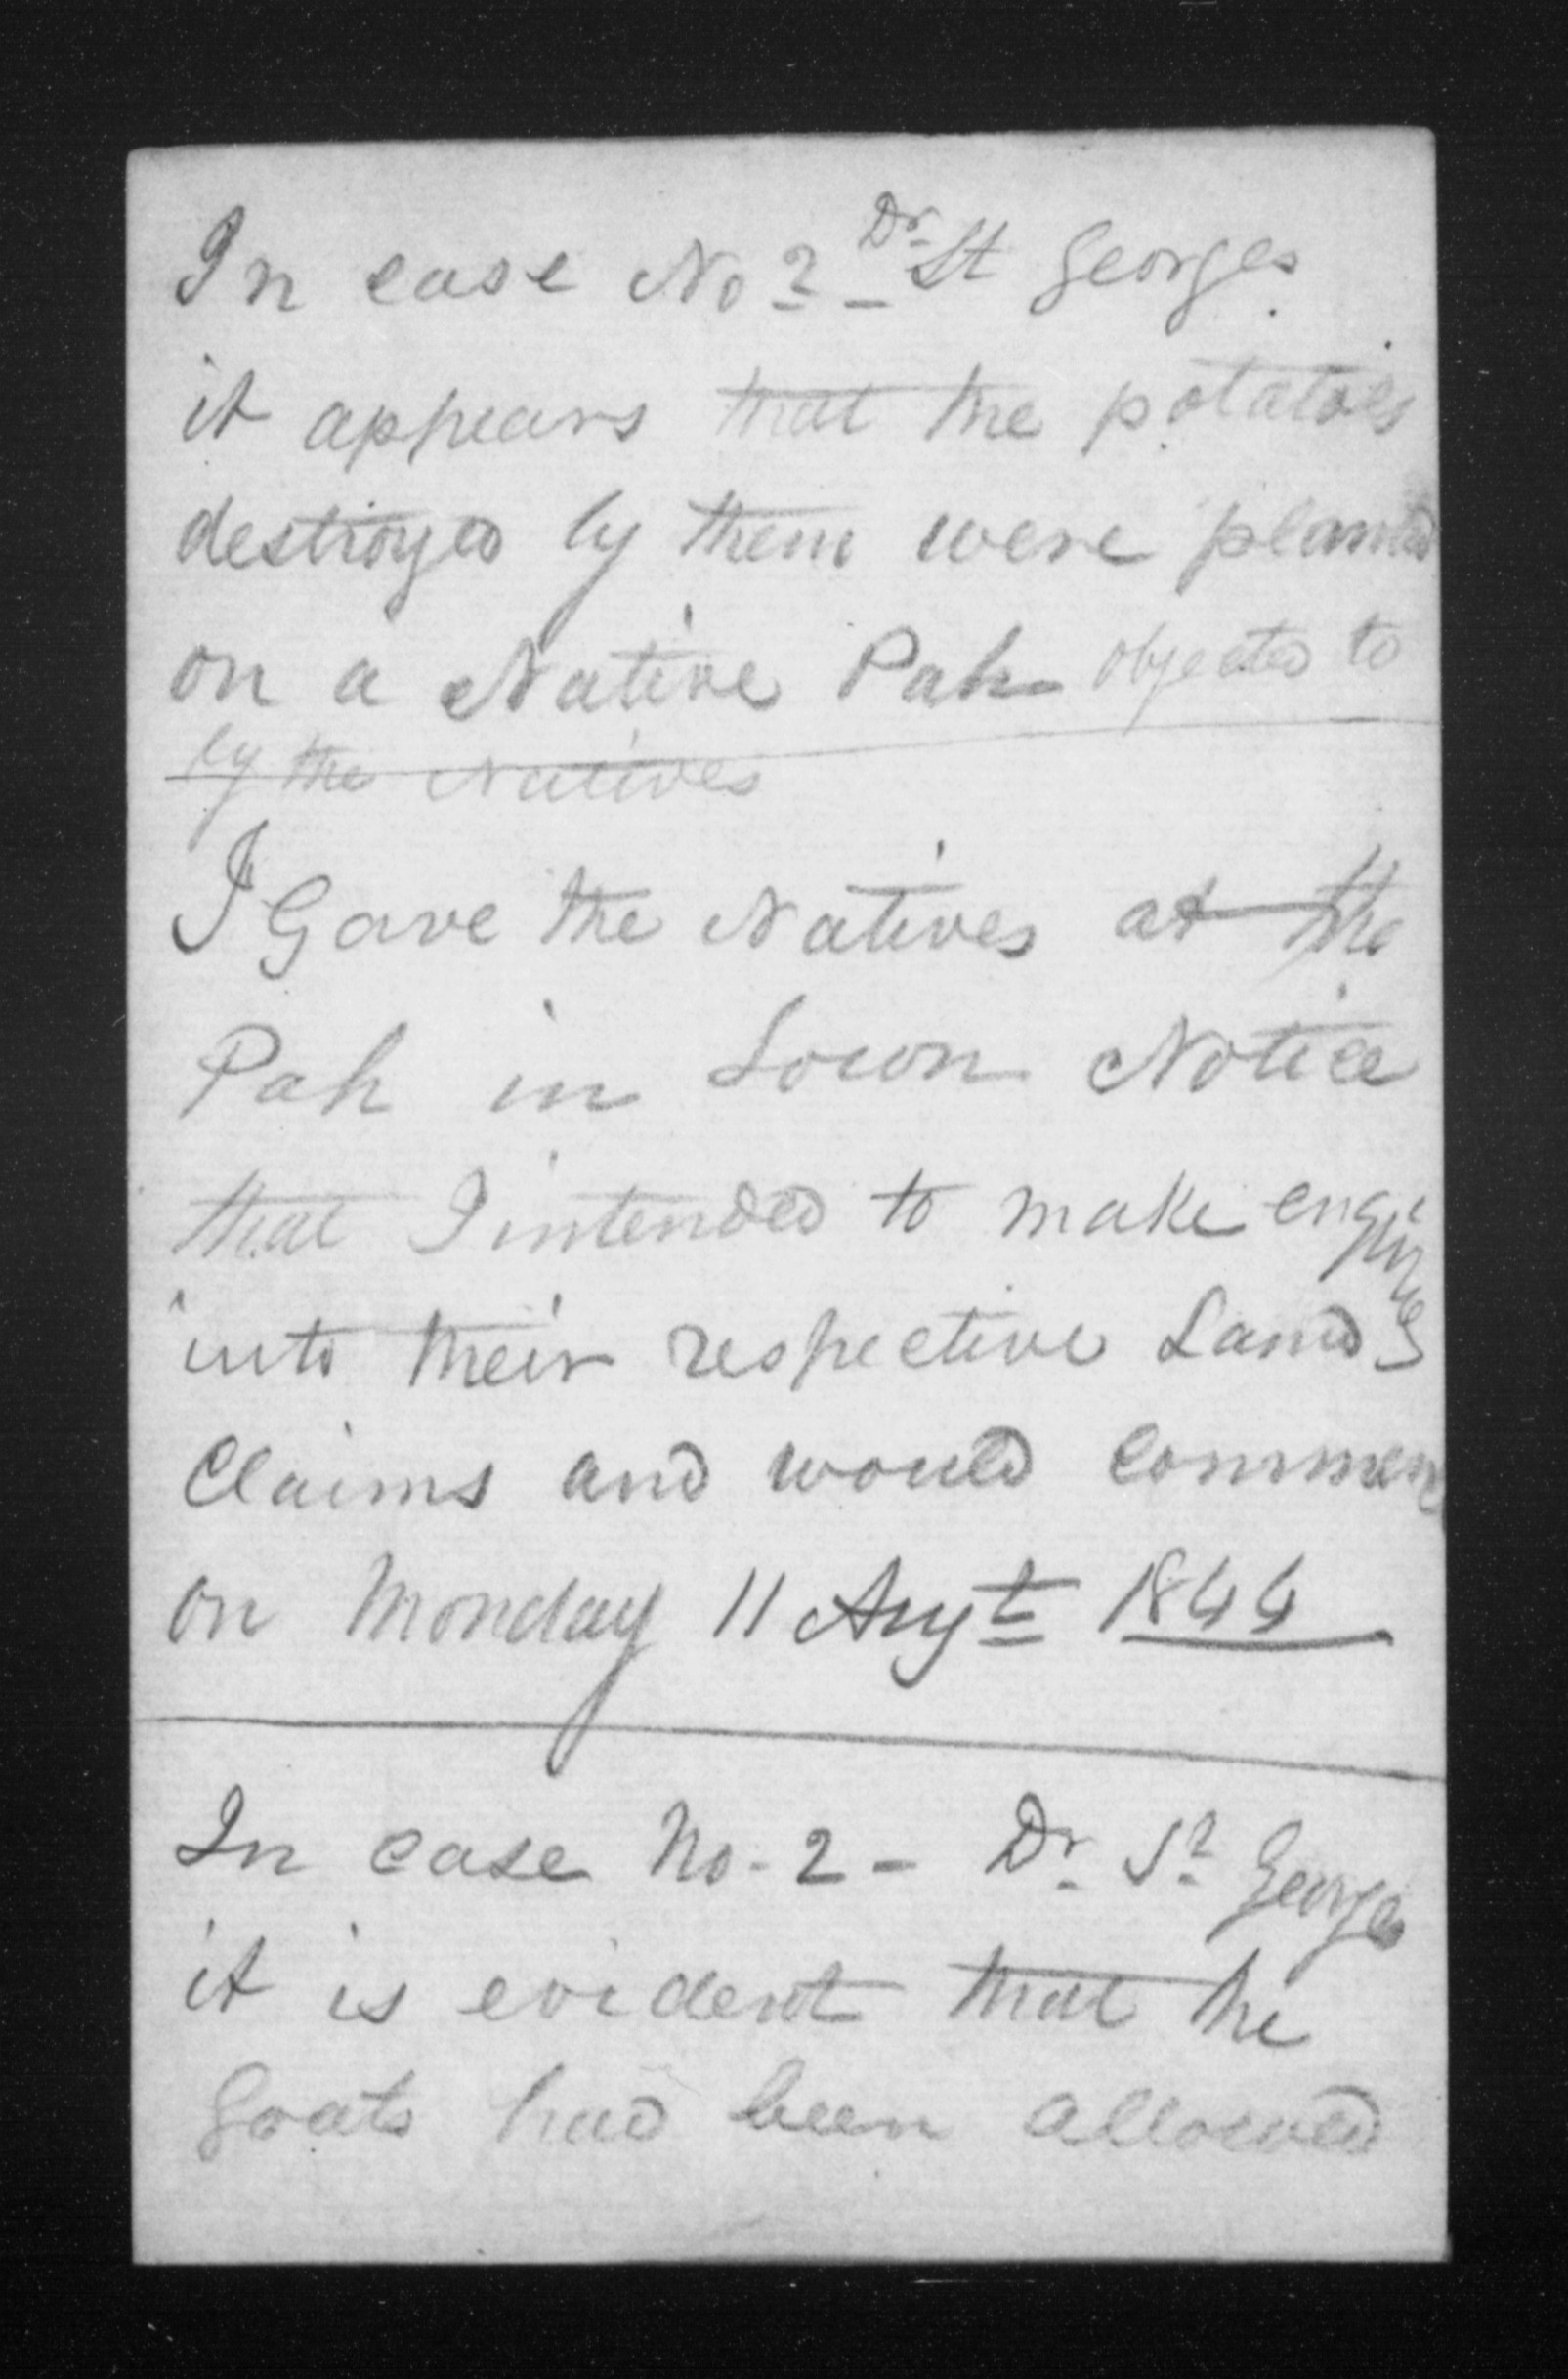 In case No 2 - Dr. St Georges.
it appears that the potatoes
destroyed by them were planted
on a Native Pah objected to
by the Natives
I Gave the Natives at the
Pah in Town Notice
that I intended to make enquiries
into their respective Land
Claims and would commence
on Monday 11 Augt 1844
In case No. 2 - Dr. St Georges
it is evident that the
Goats had been allowed